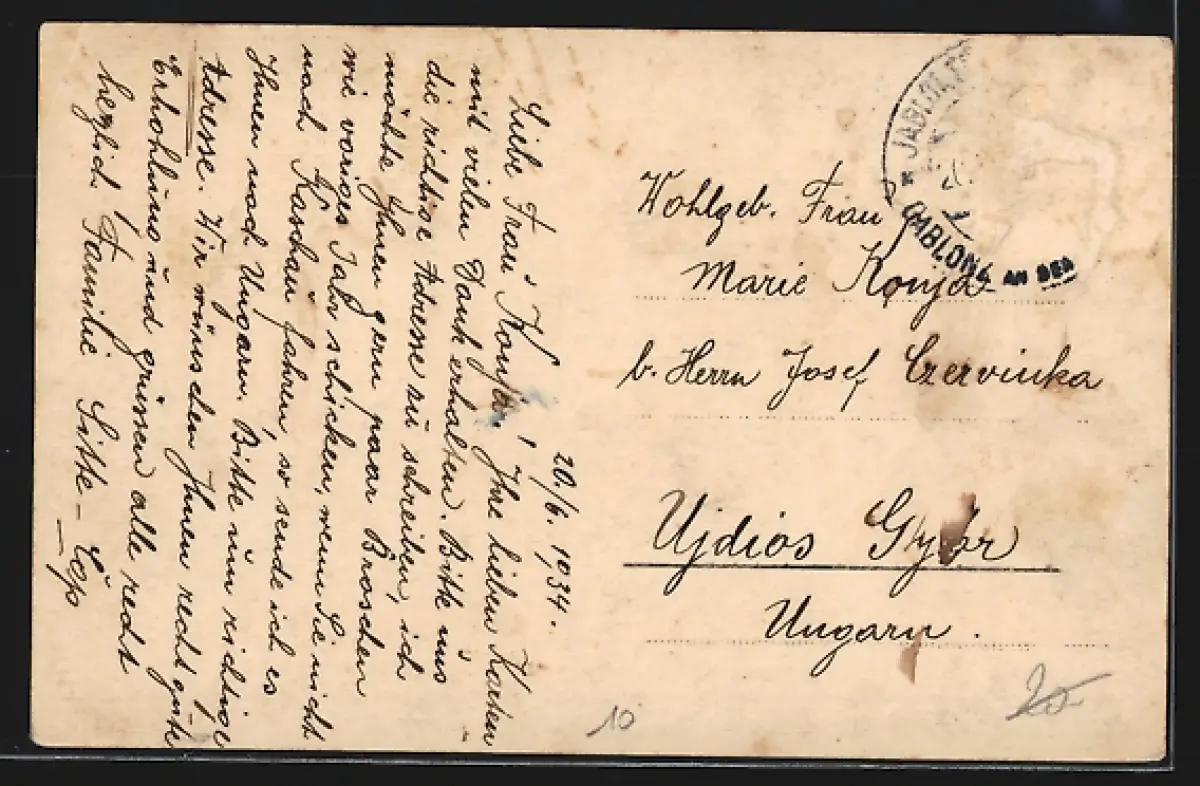 20/6. 1934.
Liebe Frau Konja! Ihre lieben Karten
mit vielen Dank erhalten. Bitte uns
die richtige Adresse zu schreiben, ich
möchte Ihnen gern paar Broschen
wie voriges Jahr schicken, wenn Sie nicht
nach Kaschau fahren, so sende ich es
Ihnen nach Ungarn. Bitte um richtige
Adresse. Wir wünschen Ihnen recht gute
Erhohlung und grüssen alle recht
herzlich. Familie Sitte –
JABLON
GABLONZ AN DER
Wohlgeb. Frau
Marie Konja
b. Herrn Josef Czervinka
Ujdios Györ
Ungarn.
10